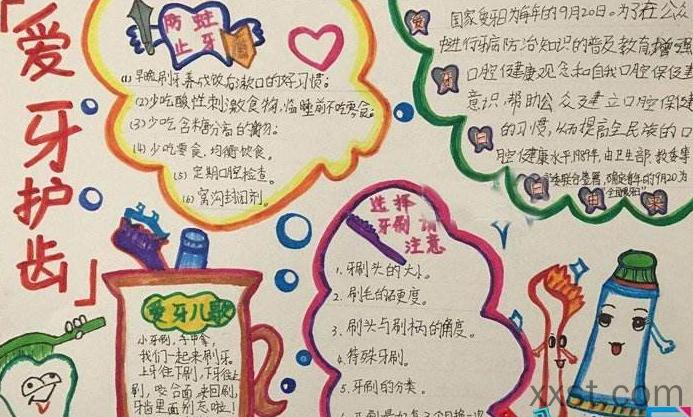 「爱牙护齿」
防蛀
止牙
(1) 早晚刷牙养成饭后漱口的好习惯;
(2) 少吃酸性刺激食物,临睡前不吃零食。
(3) 少吃含糖分高的食物.
(4) 少吃零食.均衡饮食。
(5) 定期口腔检查。
(6) 窝沟封闭剂。
国家爱牙日为每年的9月20日。为了在公众
中进行牙病防治知识的普及教育,增强
口腔健康观念和自我口腔保健
意识,帮助公众建立口腔保健
的习惯,从而提高全民族的口
腔健康水平,1989年,由卫生部、教委等
部委联合签署,确定每年的9月20为
全国爱牙日
爱牙日
日由来
选择
牙刷请
注意
1. 牙刷头的大小。
2. 刷毛的硬度。
3. 刷头与刷柄的角度。
4. 特殊牙刷。
5. 牙刷的分类。
爱牙儿歌
小牙刷,手中拿,
我们一起来刷牙。
上牙往下刷,下牙往上
刷,咬合面来回刷,
牙齿里面别忘啦!
xxst.com